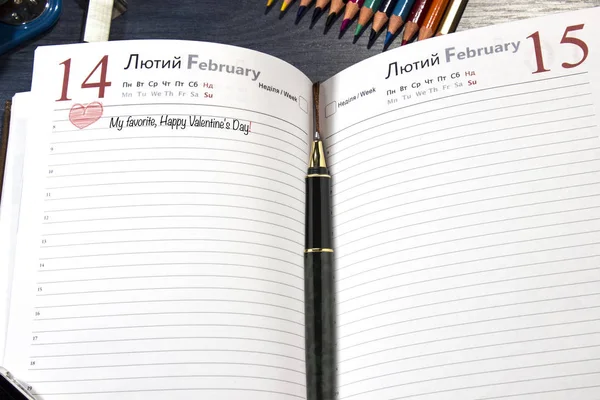 14 Лютий February
Пн Вт Ср Чт Пт Сб Нд
Mn Tu We Th Fr Sa Su
Неділя / Week
My favorite, Happy Valentine's Day!
8
9
10
11
12
13
14
15
16
17
18
19
Лютий February 15
Пн Вт Ср Чт Пт Сб Нд
Mn Tu We Th Fr Sa Su
Неділя / Week